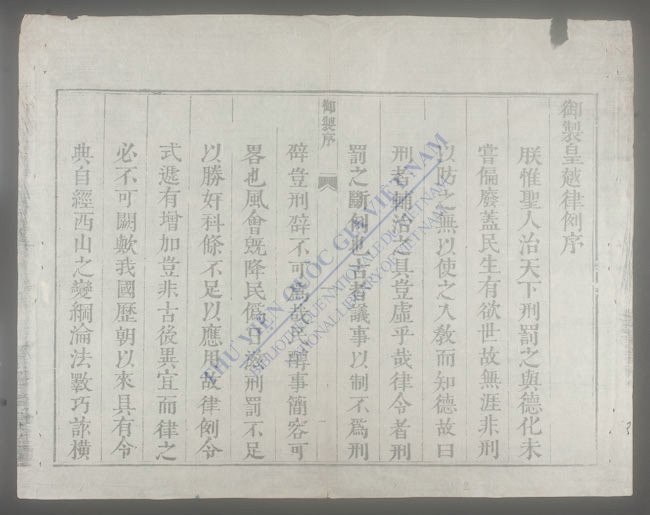 御製皇越律例序
朕惟聖人治天下刑罰之與德化未
嘗偏廢蓋民生有欲世故無涯非刑
以防之無以使之入敎而知德故曰
刑者輔治之具豈虛乎哉律令者刑
罰之斷例也古者議事以制不爲刑
御製序
辟豈刑辟不可爲哉民醇事簡容可
畧也風會旣降民僞日滋刑罰不足
以勝奸科條不足以應用故律例令
式遞有增加豈非古後異宜而律之
必不可闕歟我國歷朝以來具有令
典自經西山之變綱淪法斁巧詠橫
THƯ VIỆN QUỐC GIA VIỆT NAM
BIBLIOTHEQUE NATIONALE DU VIETNAM
NATIONAL LIBRARY OF VIETNAM